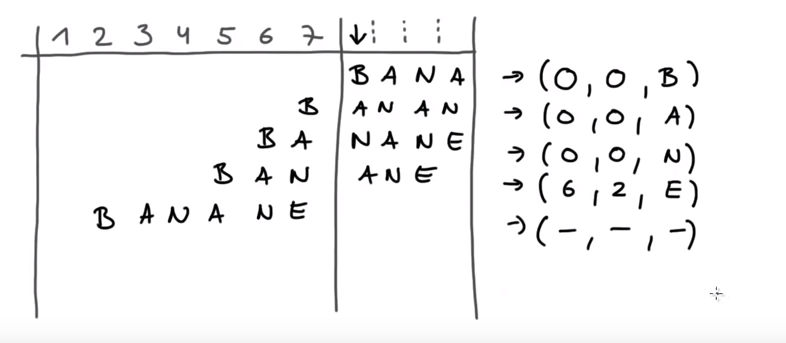 1 2 3 4 5 6 7 ↓
B A N A → (0, 0, B)
B A N A N → (0, 0, A)
B A N A N E → (0, 0, N)
B A N A N E → (6, 2, E)
B A N A N E → (-, -, -)